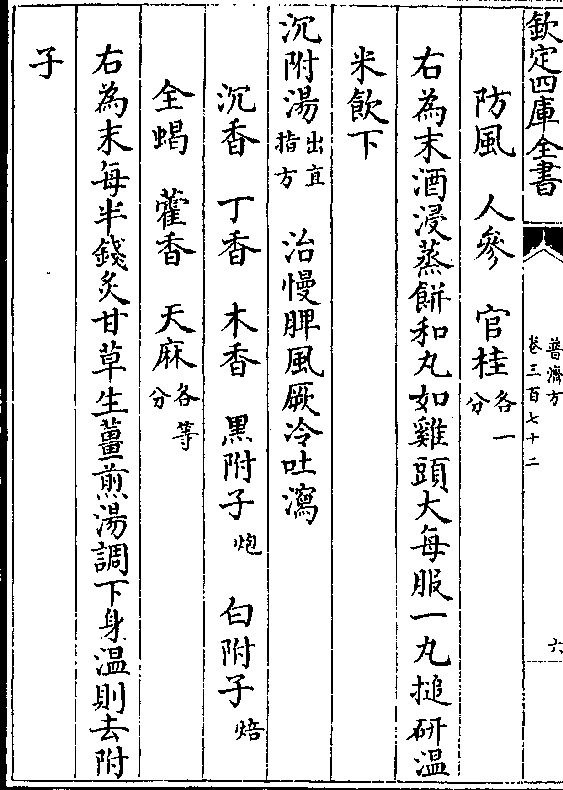 欽定四庫全書
普濟方
卷三百七十二
六
防風 人參 官桂各一分
右為末酒浸蒸餅和丸如雞頭大每服一丸搥研溫
米飲下
沉附湯出直指方 治慢脾風厥冷吐瀉
沉香 丁香 木香 黒附子炮 白附子焙
全蝎 藿香 天麻各等分
右為末每半錢炙甘草生薑煎湯調下身溫則去附
子